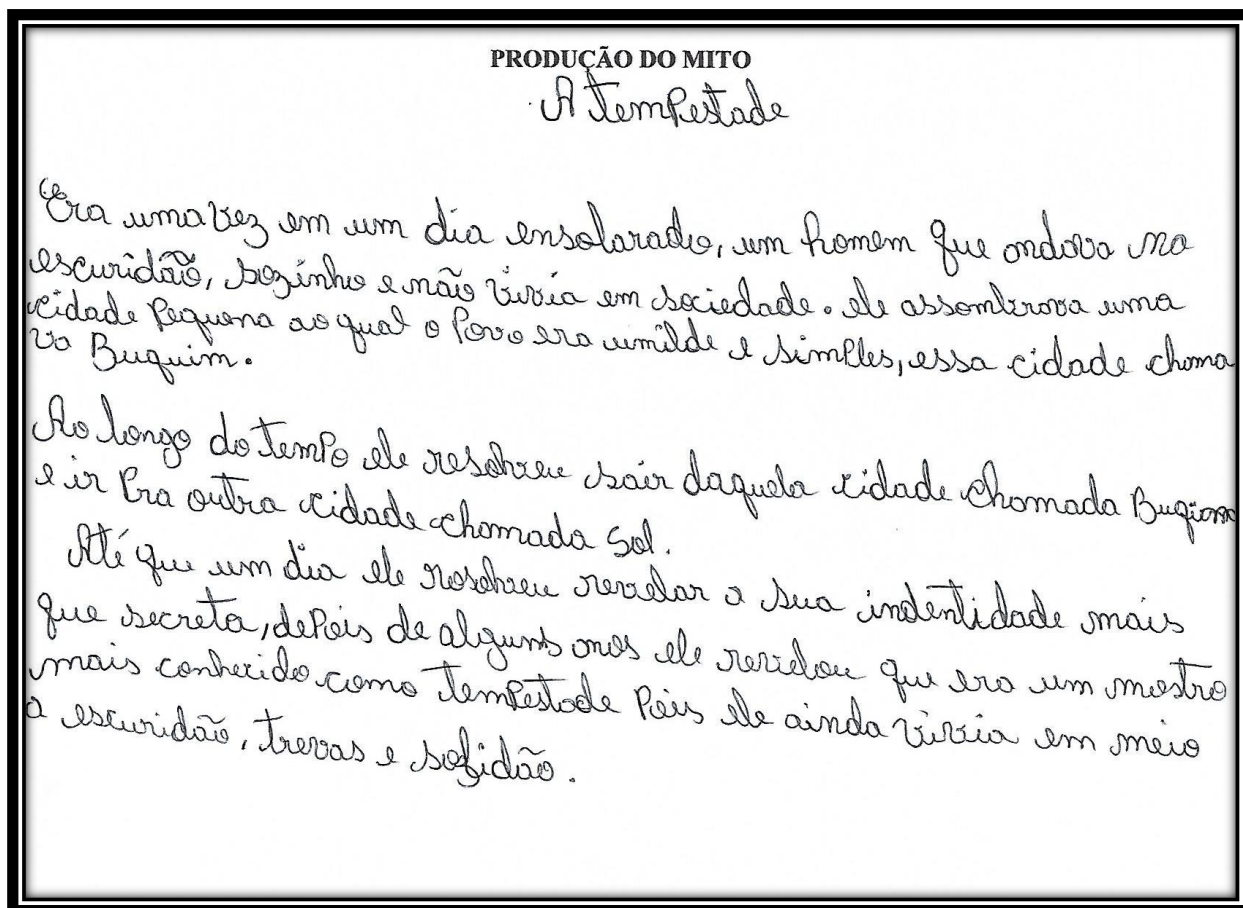 PRODUÇÃO DO MITO
A tempestade
Era uma vez em um dia ensolarado, um homem que andava na
escuridão, sozinho e não vivia em sociedade. ele assombrava uma
cidade pequena ao qual o povo era umilde e simples, essa cidade chama
va Buquim.
Ao longo do tempo ele resolveu sair daquela cidade chamada
e ir pra outra cidade chamada Sol.
Até que um dia ele resolveu revelar a sua indentidade mais
que secreta, depois de alguns anos ele revelou que era um mostro
mais conhecido como tempestade pois ele ainda vivia em meio
a escuridão, trevas e solidão.